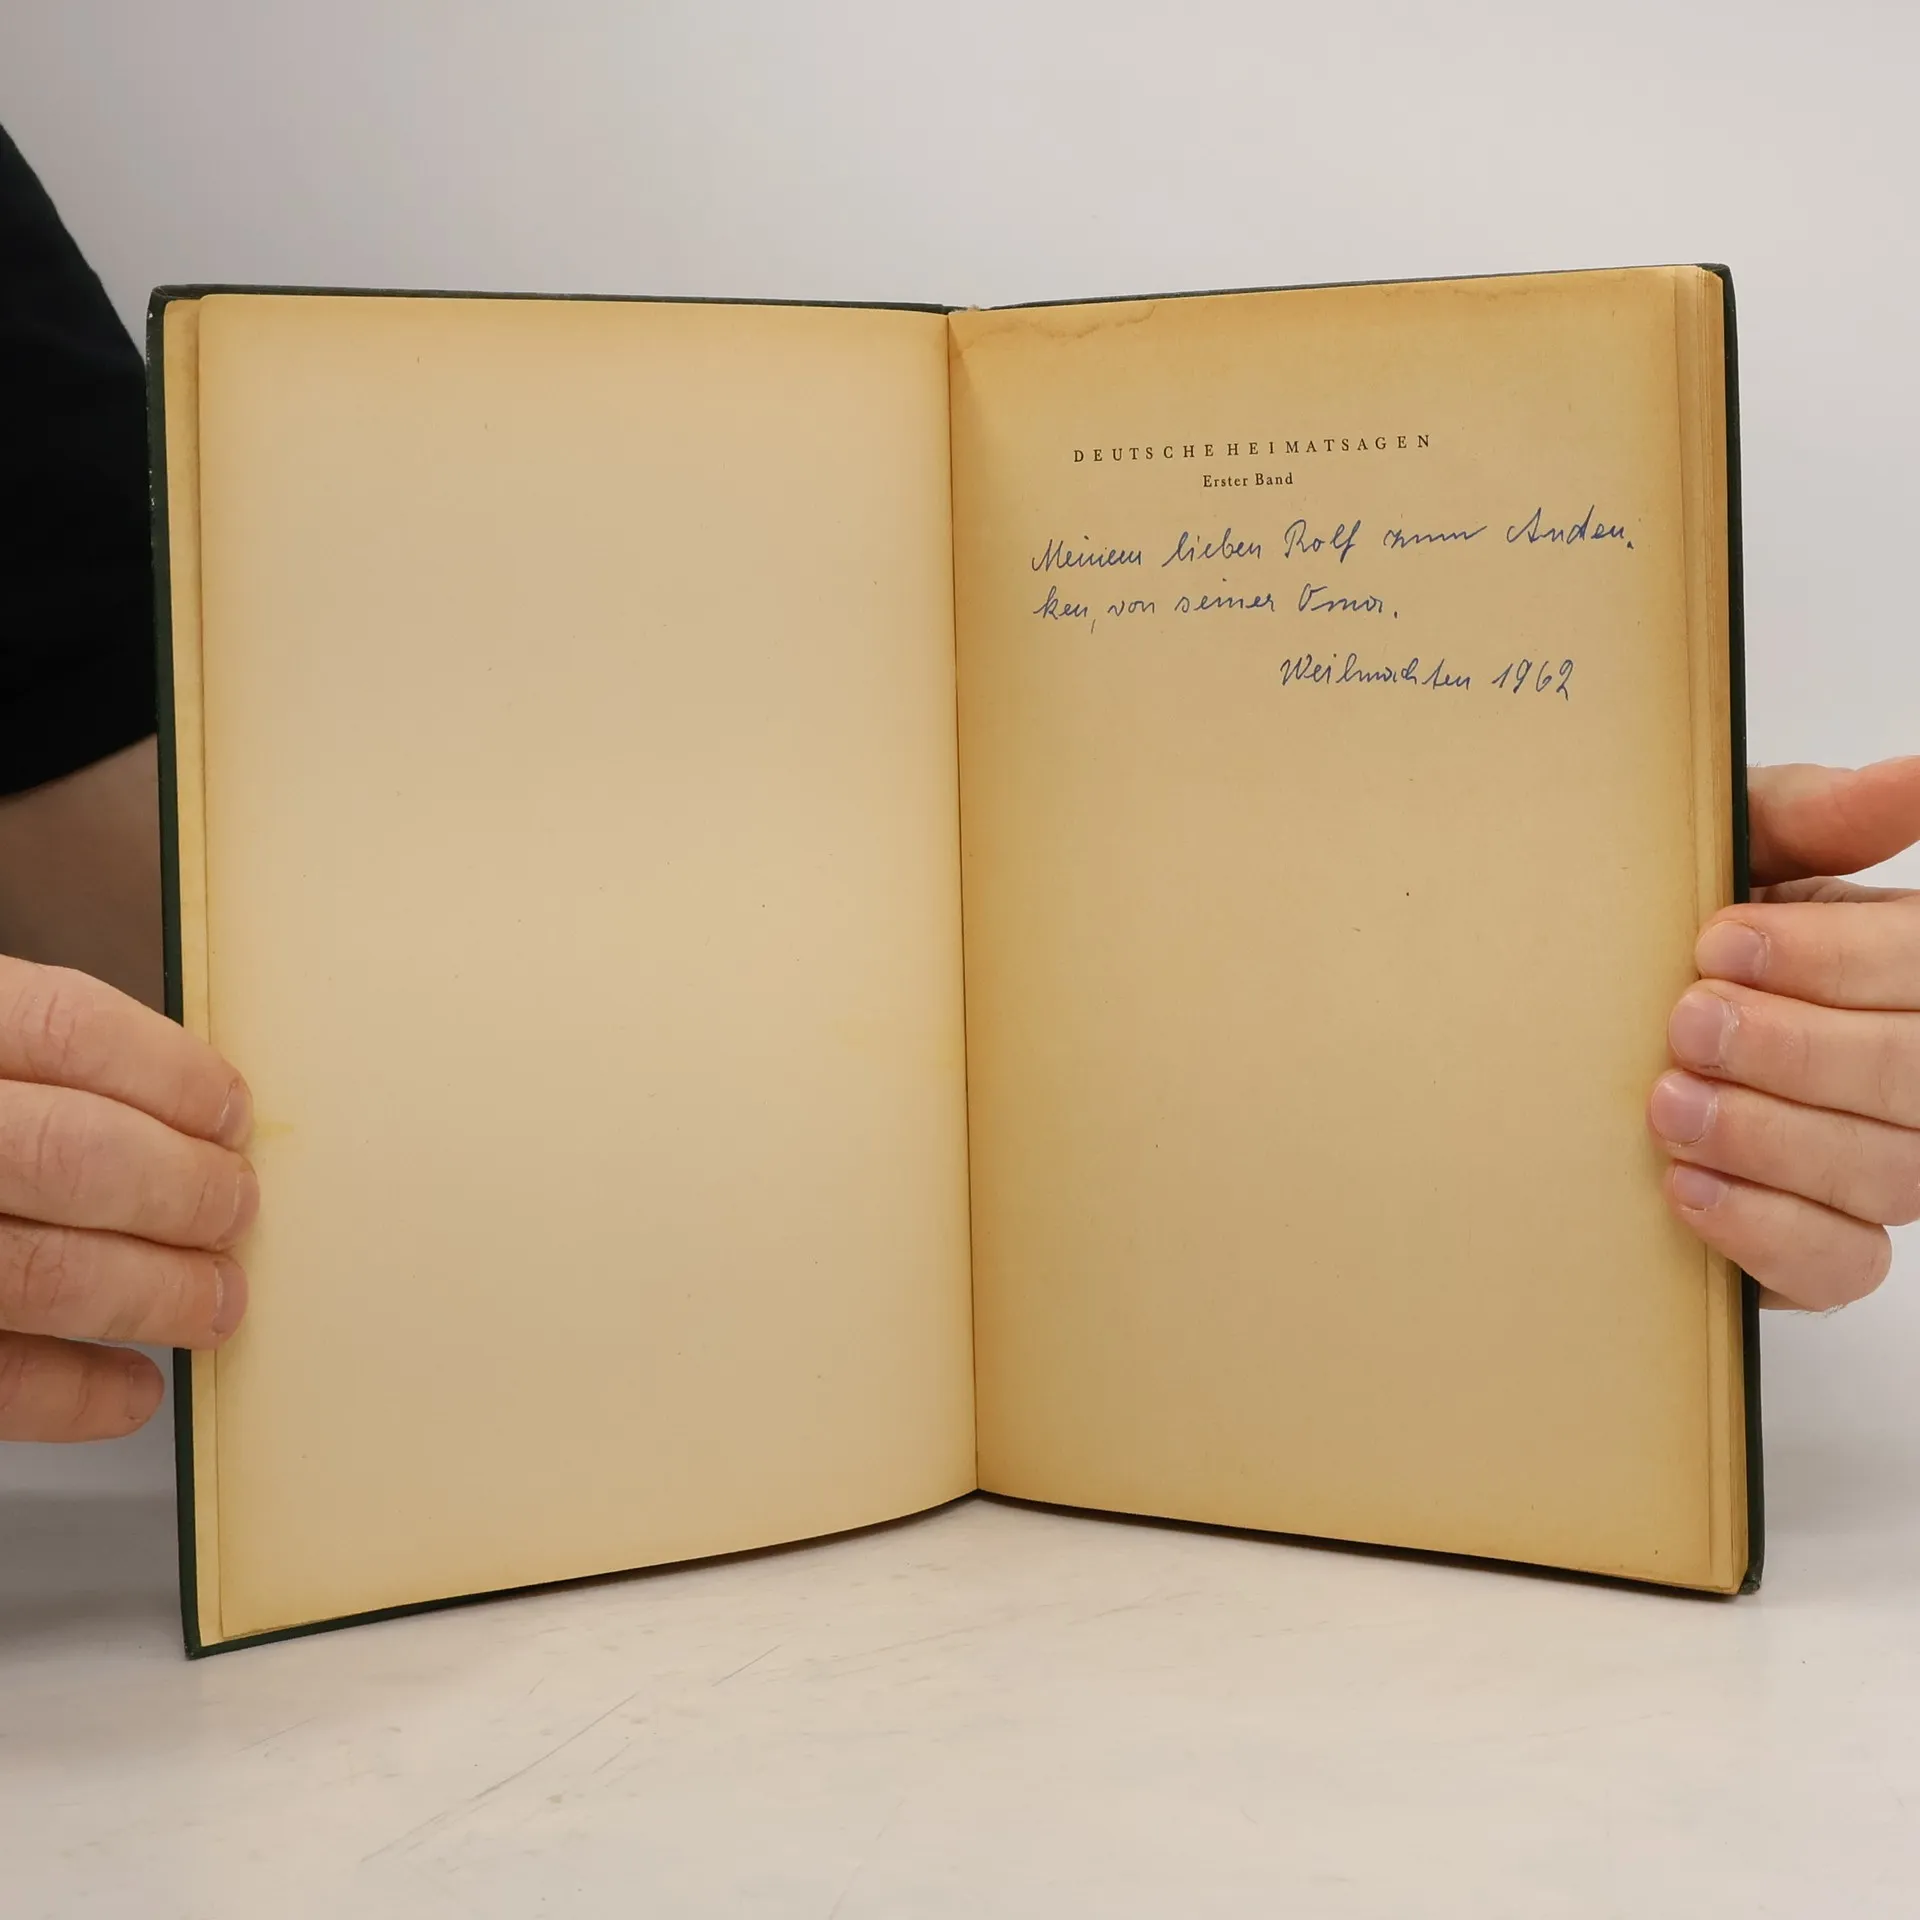 DEUTSCHE HEIMATSAGEN
Erster Band
Meinem lieben Rolf zum Anden-
ken, von seiner Oma.
Weihnachten 1962